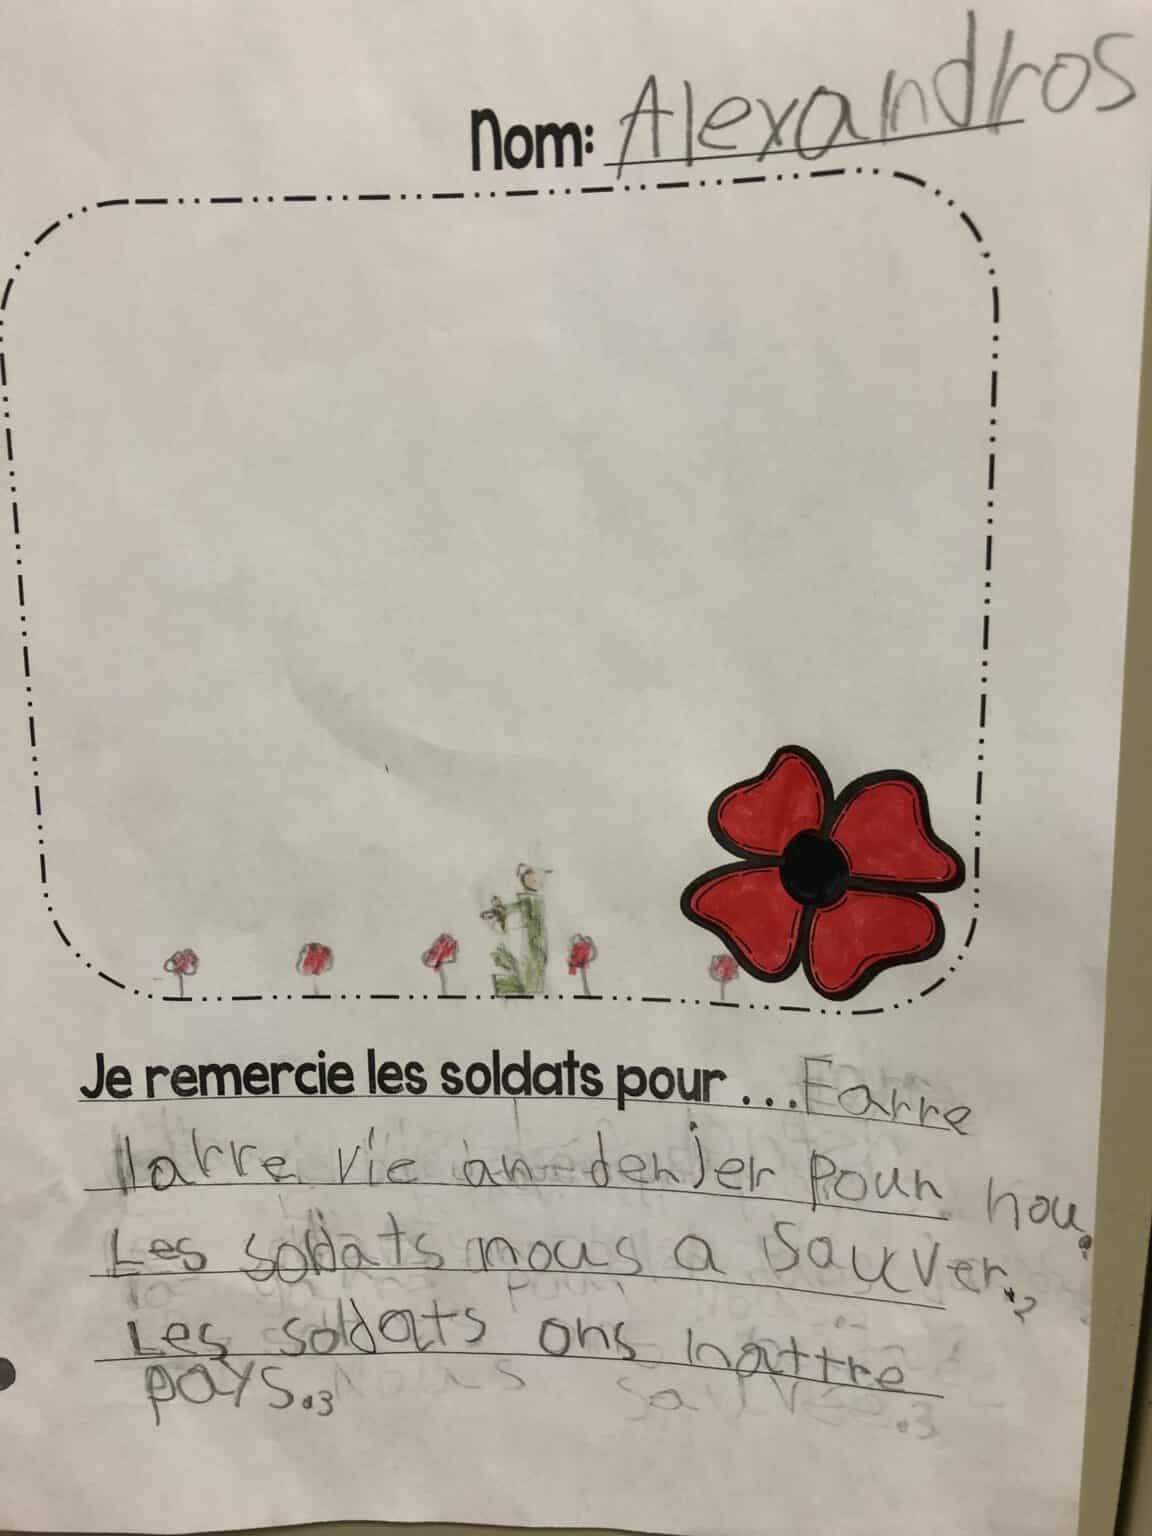 Nom: Alexandros
Je remercie les soldats pour ... Farre
larre vie an denjer pour nou.
Les soldats nous a sauver.2
Les soldats ons inattre
pays.3